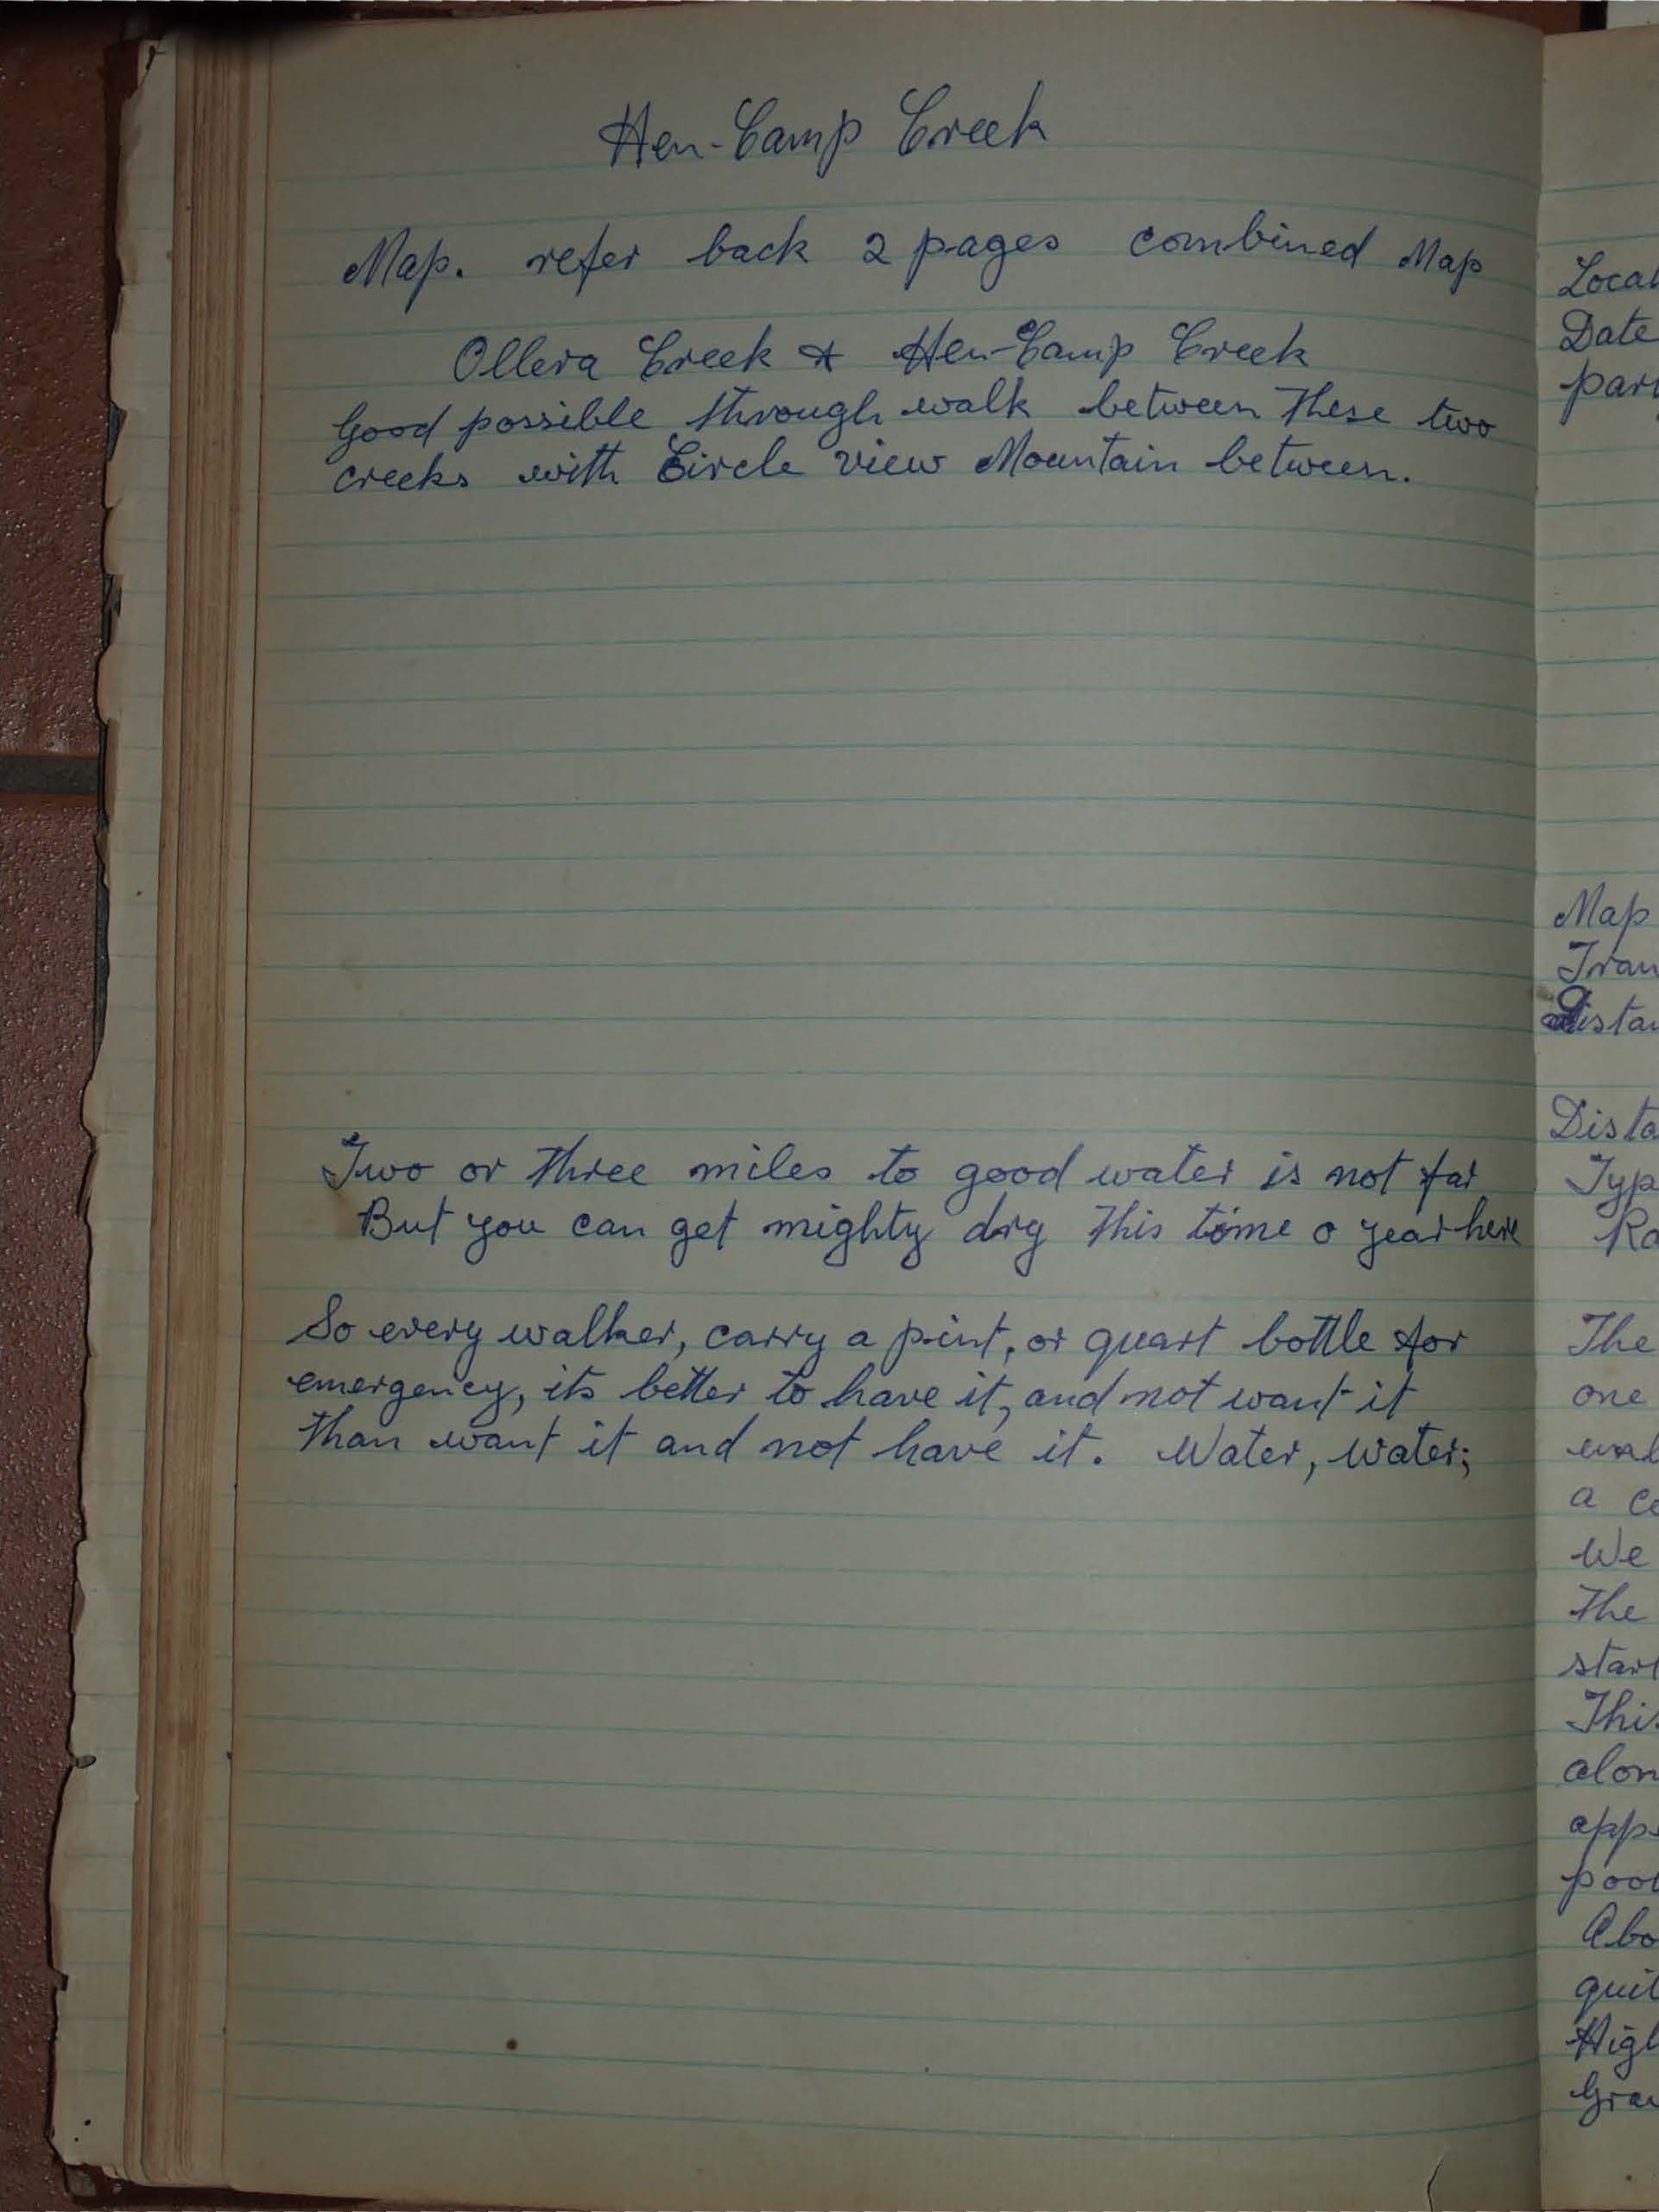 Hen-Camp Creek
Map. refer back 2 pages combined Map
Ollera Creek & Hen-Camp Creek
Good possible through walk between these two
creeks with Circle view Mountain between.
Two or three miles to good water is not far
But you can get mighty dry this time o year here
So every walker, carry a pint, or quart bottle for
emergency, its better to have it, and not want it
than want it and not have it. Water, water;
Local
Date
par
Map
Tran
Distan
Dista
Typ
Ro
The
one
wal
a co
We
the
start
This
alon
appe
pool
Abo
quit
High
Gra